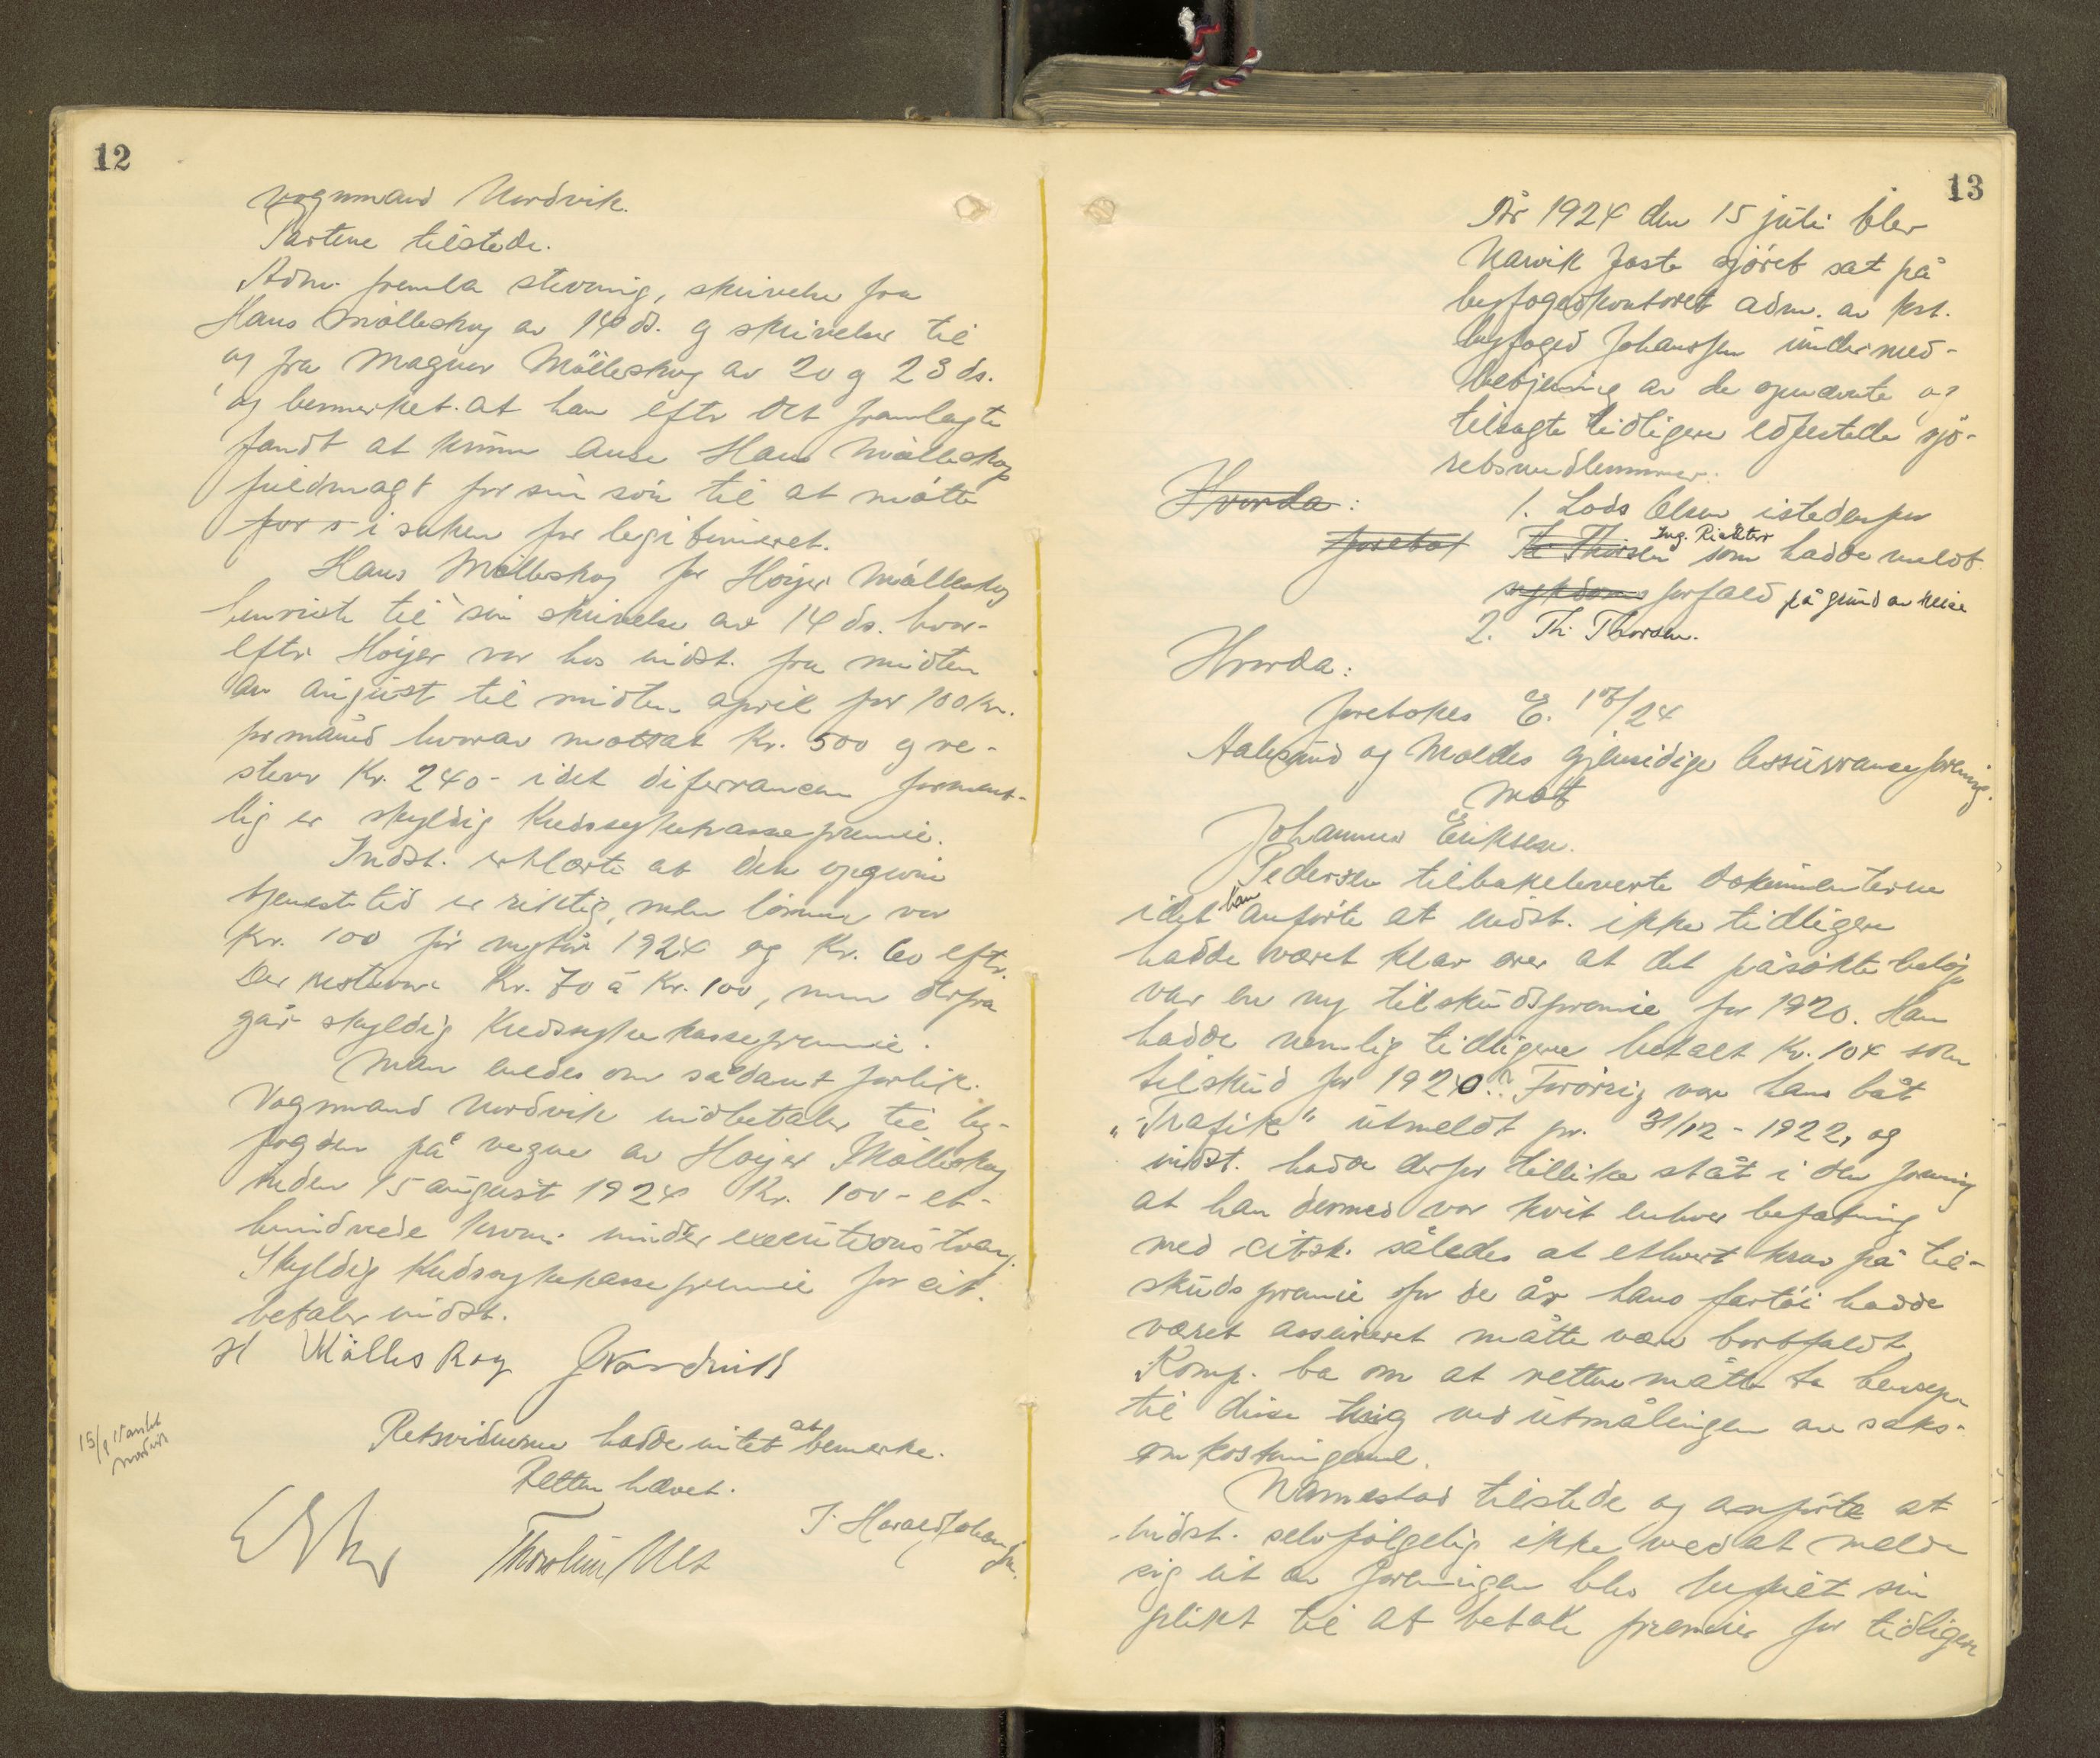 12
vognmand Nordvik.
Partene tilstede.
Adm. fremla stevning, skrivelse fra
Hans Mølleskog av 14 ds. og skrivelser til
og fra Magnus Mølleskog av 20 og 23 ds.
og bemerket at han efter det fremlagte
fandt at kunne anse Hans Mølleskog
fuldmagt for sin søn til at møtte
for i saken for legitimeret.
Hans Mølleskog for Höyer Mølleskog
henviste til sin skrivelse av 14 ds. hvor-
efter Höyer var hos indst. fra midten
av august til midten april for 100 kr.
pr måned hvorav mottat kr. 500 og re-
sterer Kr. 240- idet diferrancen forment-
lig er skyldig Kredssykekassepremie.
Indst. erklærte at den opgivne
tjenestetid er riktig, men lönnen var
Kr. 100 för nytår 1924 og Kr. 60 efter.
Der resterer Kr. 70 à Kr. 100, men derfra
går skyldig Kredssykekassepremie.
Man enedes om sådant forlik.
Vognmand Nordvik indbetaler til by-
fogden på vegne av Höyer Mølleskog
inden 15 august 1924 Kr. 100- et-
hundrede kroner under executionstvang.
Skyldig Kredssykekassepremie for cit.
betaler indst.
H Mølles Kog JNordvik
Retsvidnerne hadde intet at bemerke.
Retten hævet.
J. Harald Johanssen.
15/8
Nordvik
13
År 1924 den 15 juli blev
Narvik faste sjöret sat på
byfogedkontoret adm. av kst.
byfoged Johanssen under med-
betjening av de opnævnte og
tilsagte tidligere edfestede sjö-
retsmedlemmer:
Hvorda: 1. Lods Olsen istedenfor
foretat Th Thorsen Ing. Richter som hadde meldt
sykdoms forfald på grund av reise
2. Th. Thorsen.
Hvorda:
foretokes E. 17/24
Aalesund og Moldes gjensidige assuranceforening.
mot
Johannes Eriksen.
Pedersen tilbakeleverte dokumenterne
idet han anførte at indst. ikke tidligere
hadde været klar over at det påsökte beløp
var en ny tilskudspremie for 1920. Han
hadde nemlig tidligere betalt Kr. 104 som
tilskud for 1920. Forövrig var hans båt
"Trafik" utmeldt pr. 31/12-1922, og
indst. hadde derfor tillike ståt i den forening
at han dermed var kvit enhver befatning
med citsk. således at ethvert krav på til-
skuds premie for de år hans fartöi hadde
været assureret måtte være bortfaldt.
Komp. ba om at retten måtte ta hensyn
til disse ting ved utmålingen av saks-
omkostningerne.
Wannestad tilstede og anførte at
indst. selvfølgelig ikke ved at melde
sig ut av foreningen blev befriet sin
plikt til at betale premier for tidligere